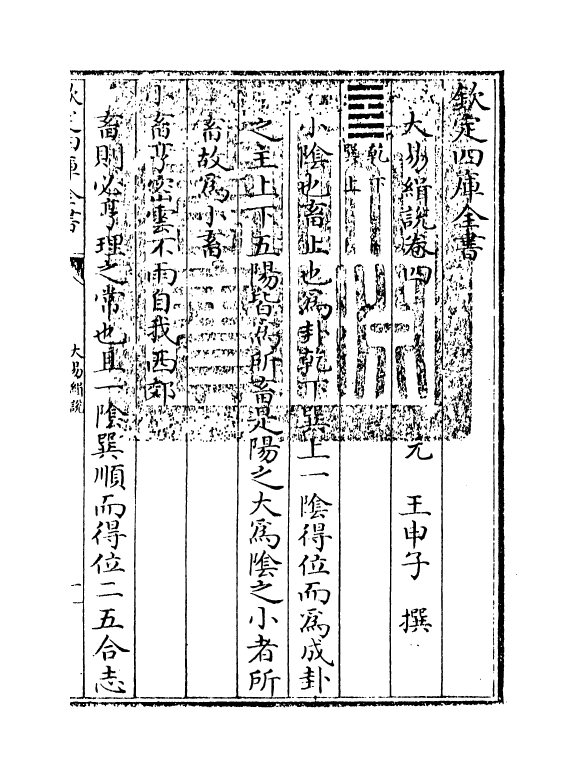 欽定四庫全書
大易緝說卷四
元　王申子　撰
乾下
巽上
小陰也畜止也為卦乾下巽上一陰得位而為成卦
之主上下五陽皆為所畜是陽之大為陰之小者所
畜故為小畜
小畜亨密雲不雨自我西郊
畜則必亨理之常也且一陰巽順而得位二五合志
欽定四庫全書
大易緝說
一